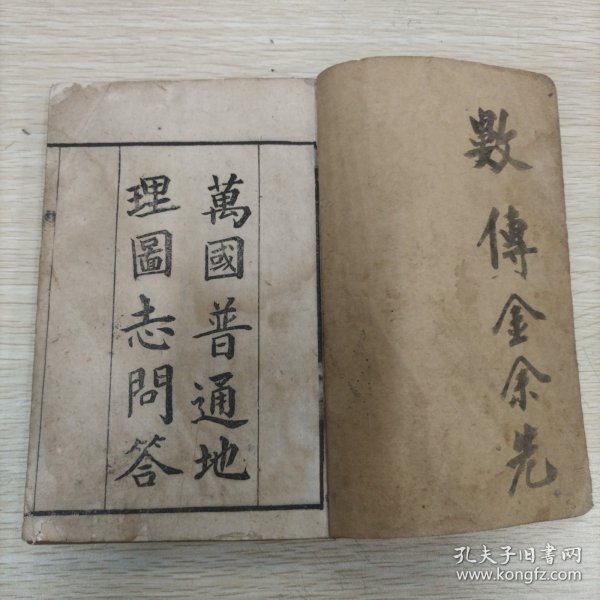 數傳金余先
萬國普通地
理圖志問答
孔夫子旧书网
www.kongfz.com